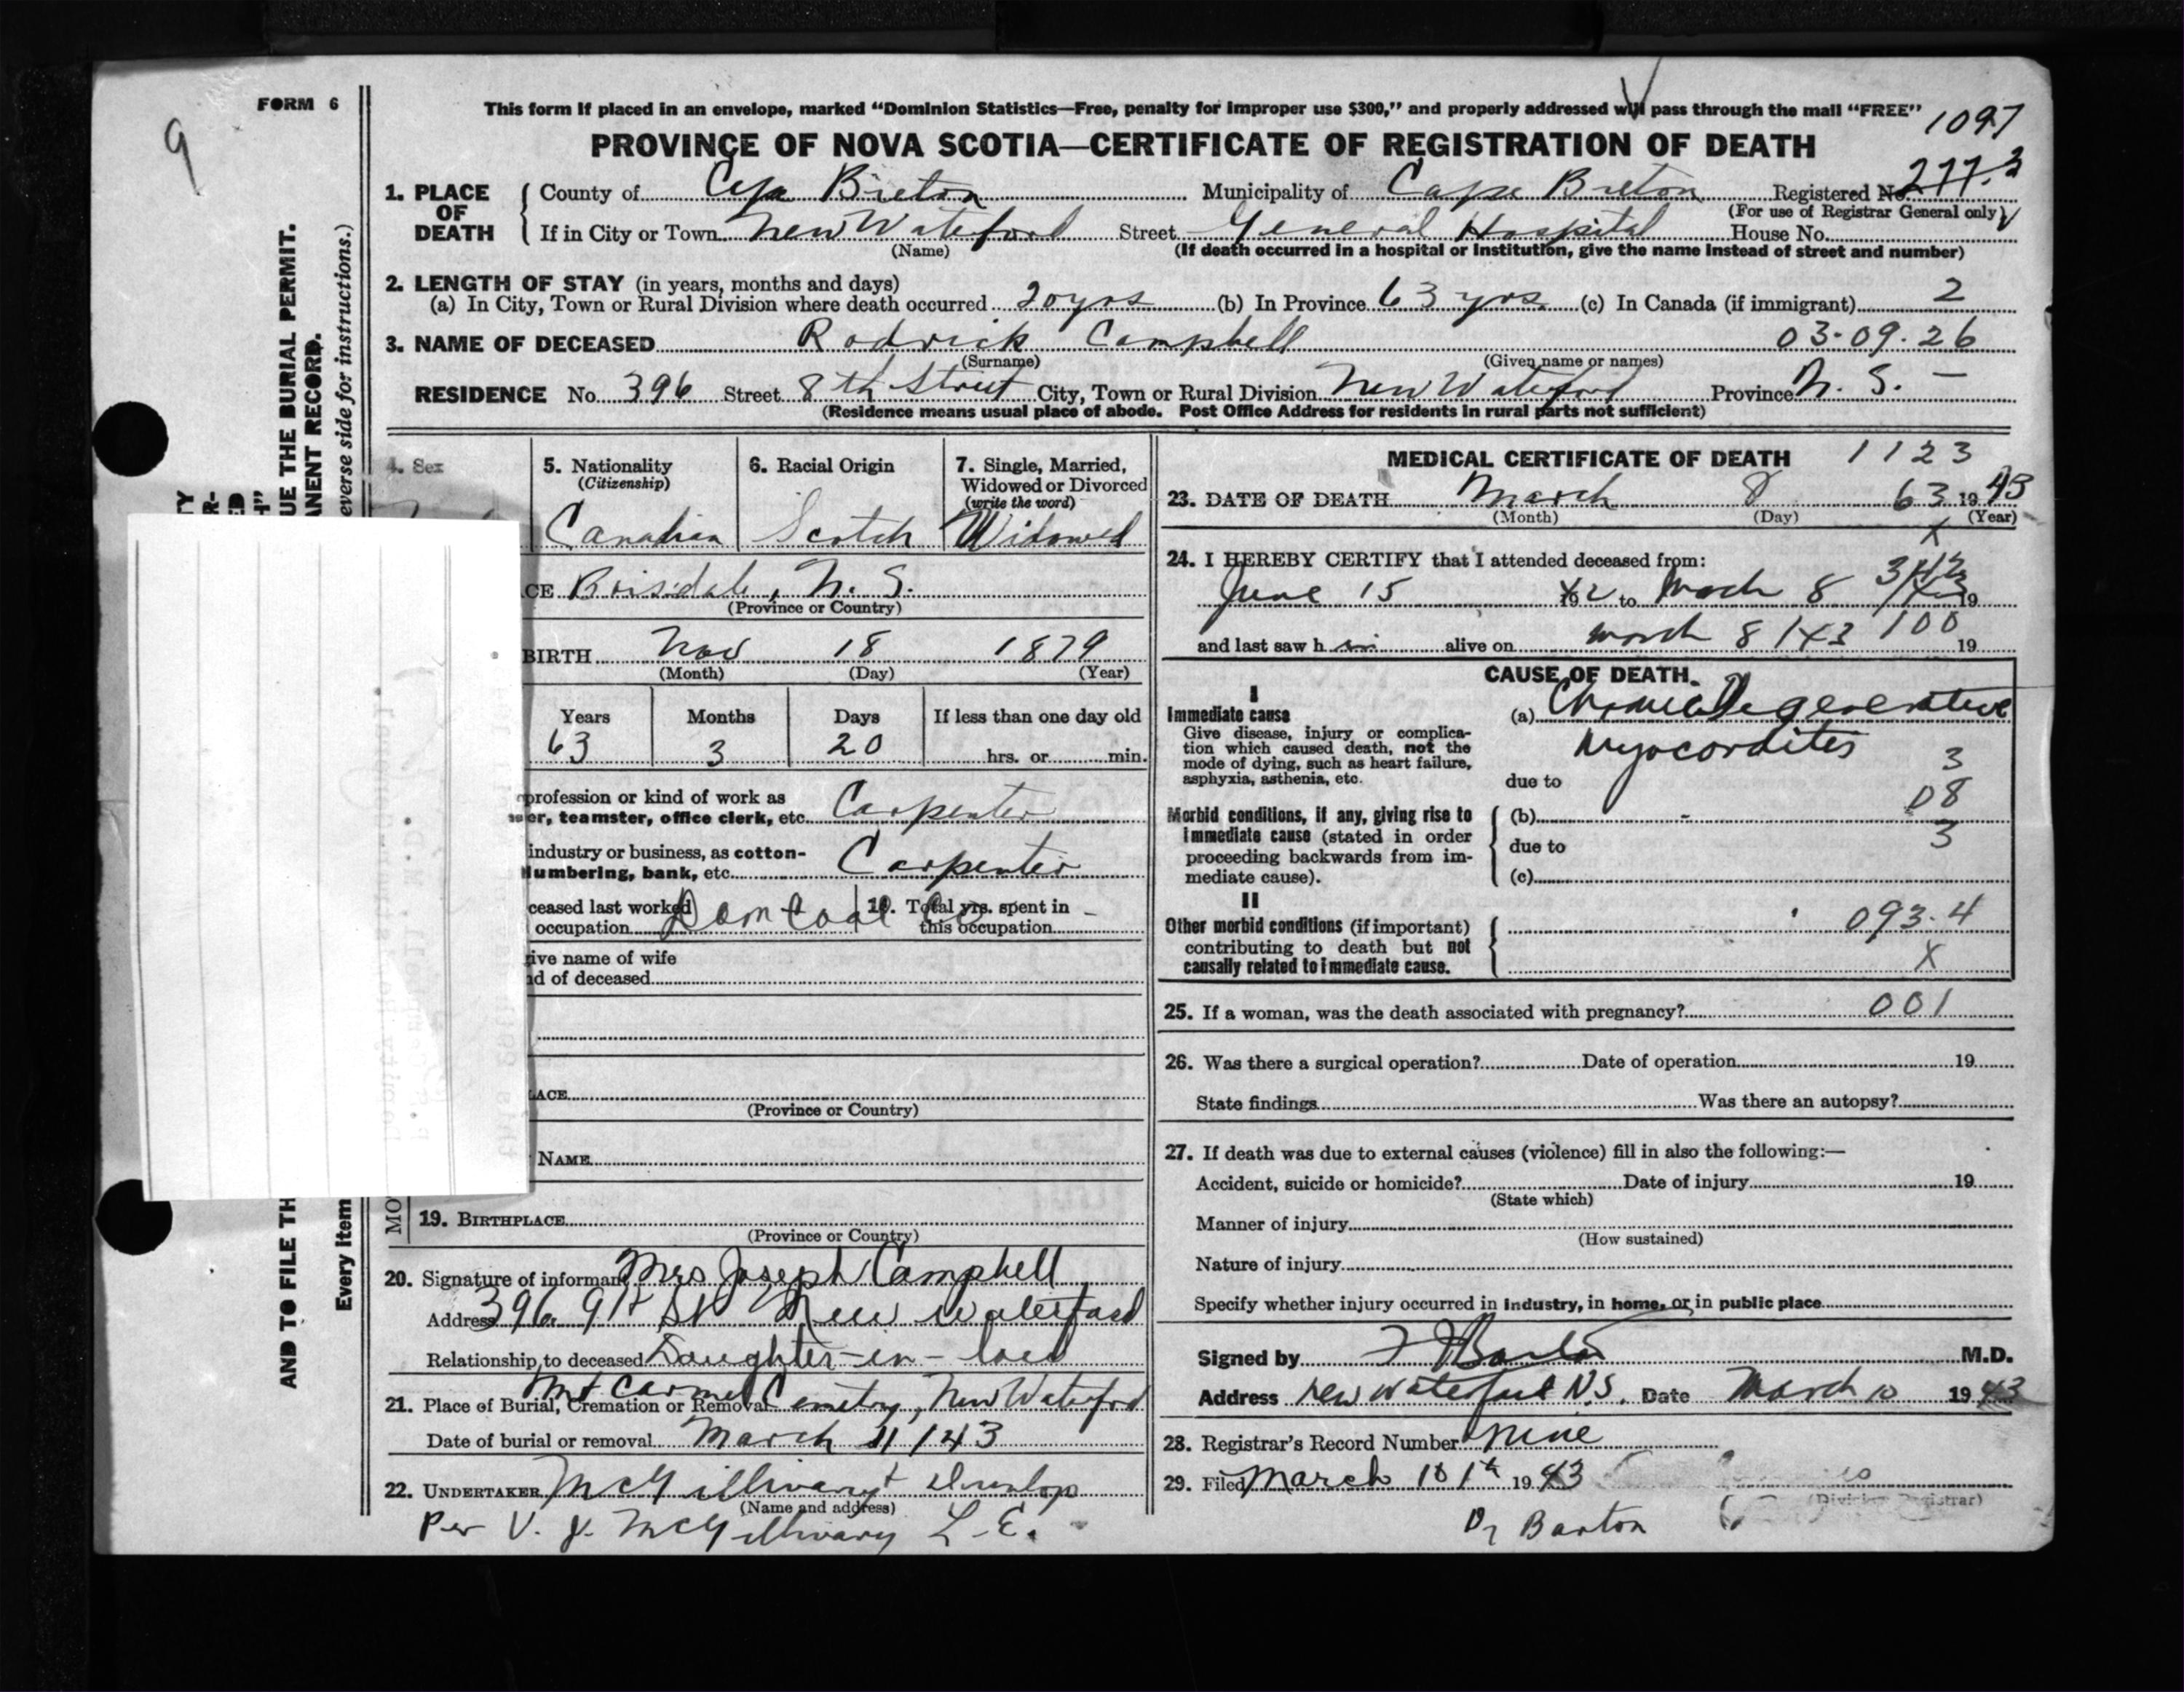 9
FORM 6
This form if placed in an envelope, marked “Dominion Statistics—Free, penalty for improper use $300,” and properly addressed will pass through the mail “FREE”
1097
PROVINCE OF NOVA SCOTIA—CERTIFICATE OF REGISTRATION OF DEATH
1. PLACE OF DEATH
County of Cape Breton Municipality of Cape Breton Registered No. 277.3
(For use of Registrar General only)
If in City or Town New Waterford Street General Hospital House No.
(Name) (If death occurred in a hospital or institution, give the name instead of street and number)
2. LENGTH OF STAY (in years, months and days)
(a) In City, Town or Rural Division where death occurred 20 yrs (b) In Province 63 yrs. (c) In Canada (if immigrant) 2
3. NAME OF DECEASED Rodrick Campbell 03-09.26
(Surname) (Given name or names)
RESIDENCE No. 396 Street 8th Street City, Town or Rural Division New Waterford Province N. S. —
(Residence means usual place of abode. Post Office Address for residents in rural parts not sufficient)
UE THE BURIAL PERMIT.
ANENT RECORD.
everse side for instructions.)
AND TO FILE TH
Every item
4. Sex
5. Nationality (Citizenship)
Canadian
6. Racial Origin
Scotch
7. Single, Married, Widowed or Divorced (write the word)
Widowed
CE Boisdale, N. S.
(Province or Country)
BIRTH Nov 18 1879
(Month) (Day) (Year)
Years Months Days If less than one day old
63 3 20 hrs. or min.
profession or kind of work as
er, teamster, office clerk, etc. Carpenter
industry or business, as cotton-
lumbering, bank, etc. Carpenter
ceased last worked Dom Coal Co 14. Total yrs. spent in
occupation this occupation —
ive name of wife
d of deceased
LACE
(Province or Country)
NAME
MO
19. BIRTHPLACE
(Province or Country)
20. Signature of informant Mrs Joseph Campbell
Address 396 9th St New Waterford
Relationship to deceased Daughter-in-law
21. Place of Burial, Cremation or Removal Mt Carmel Cemetry, New Waterford
Date of burial or removal March 11/43
22. UNDERTAKER McGillivary + Dunlop
(Name and address)
Per V. J. McGillivary L. E.
MEDICAL CERTIFICATE OF DEATH 1123
23. DATE OF DEATH March 8 63 1943
(Month) (Day) (Year)
X
24. I HEREBY CERTIFY that I attended deceased from:
June 15 42 to March 8 19
and last saw h im alive on March 8 1943 100 19
CAUSE OF DEATH.
I
Immediate cause
Give disease, injury or complication which caused death, not the mode of dying, such as heart failure, asphyxia, asthenia, etc.
(a) Chronic Degenerative
Myocarditis
3
due to
08
Morbid conditions, if any, giving rise to immediate cause (stated in order proceeding backwards from immediate cause).
(b) -
due to 3
(c)
II
Other morbid conditions (if important) contributing to death but not causally related to immediate cause.
093.4
X
25. If a woman, was the death associated with pregnancy? 001
26. Was there a surgical operation? Date of operation 19
State findings Was there an autopsy?
27. If death was due to external causes (violence) fill in also the following:—
Accident, suicide or homicide? Date of injury 19
(State which)
Manner of injury
(How sustained)
Nature of injury
Specify whether injury occurred in industry, in home, or in public place
Signed by Barton M.D.
Address New Waterford N.S. Date March 10 1943
28. Registrar's Record Number nine
29. Filed March 1943
(Division Registrar)
Dr Barton